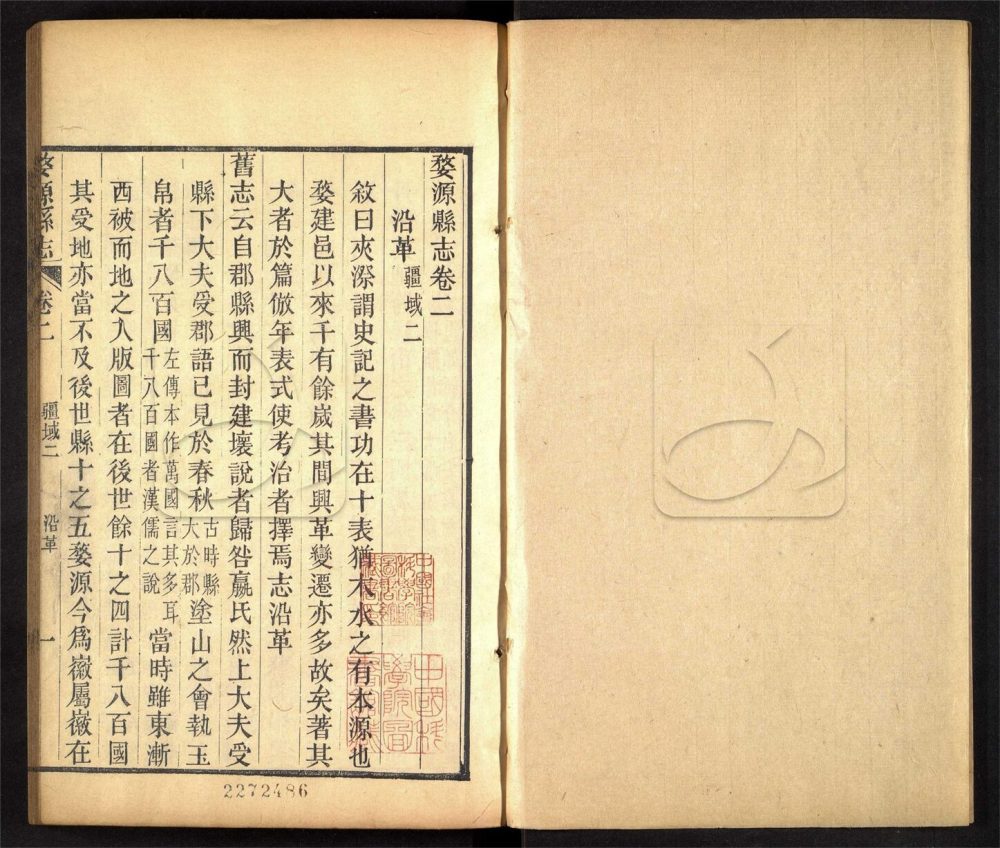 婺源縣志卷二
沿革 疆域二
敘曰夾漈謂史記之書功在十表猶木水之有本源也
婺建邑以來千有餘歲其間興革變遷亦多故矣著其
大者於篇倣年表式使考治者擇焉志沿革
舊志云自郡縣興而封建壞說者歸咎嬴氏然上大夫受
縣下大夫受郡語已見於春秋古時縣大於郡塗山之會執玉
帛者千八百國左傳本作萬國言其多耳千八百國者漢儒之說當時雖東漸
西被而地之入版圖者在後世餘十之四計千八百國
其受地亦當不及後世縣十之五婺源今爲徽屬徽在
婺源縣志 卷二 疆域二 沿革 一
2272486